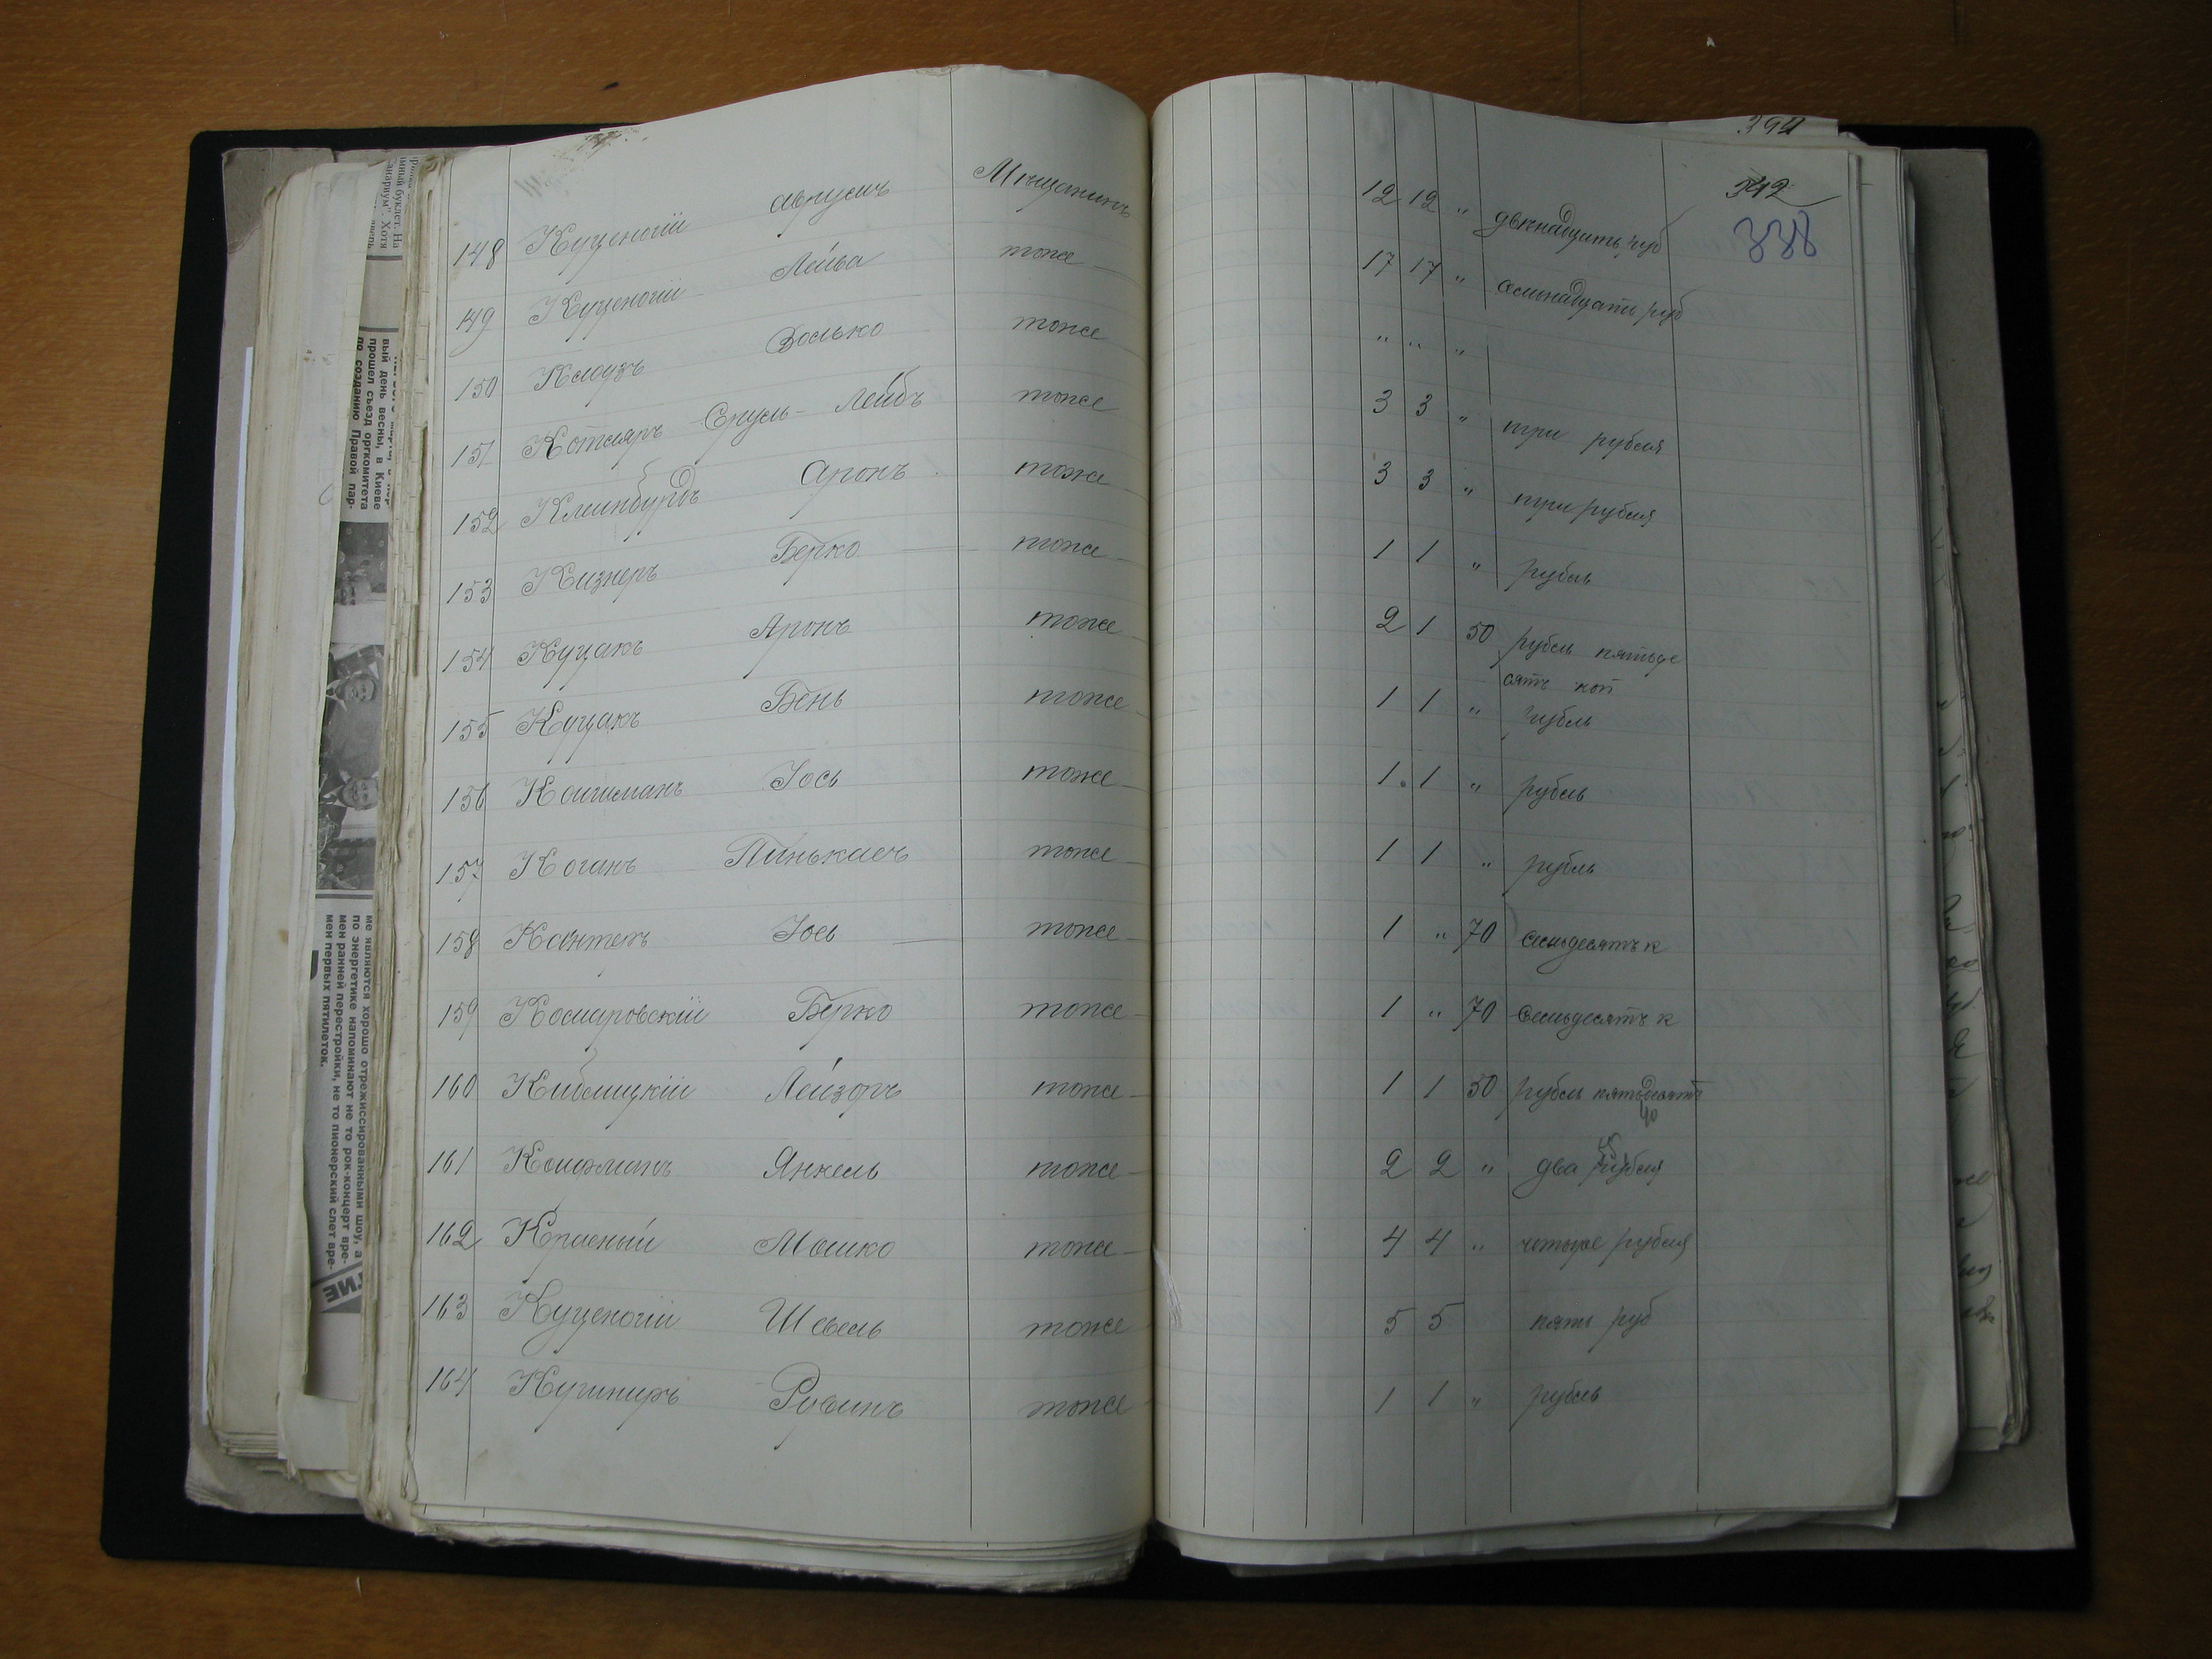 394
342
338
148 Куценогій Мѣщанинъ 12 12 " двенадцать руб
149 Куценогій Лейба тоже 17 17 " семьнадцать руб
150 Клоузъ Волько тоже " " "
151 Котляръ Сруль-Лейбъ тоже 3 3 " три рубля
152 Клейнбурдъ Аронъ тоже 3 3 " три рубля
153 Кизнеръ Берко тоже 1 1 " рубль
154 Куцакъ Аронъ тоже 2 1 50 рубль пятьде
сятъ коп
155 Куцакъ Бень тоже 1 1 " рубль
156 Іось тоже 1 1 " рубль
157 Коганъ Пинькасъ тоже 1 1 " рубль
158 Кантеръ Іось тоже 1 " 70 семьдесятъ к
159 Комаровскій Берко тоже 1 " 70 семьдесятъ к
160 Кивлицкій Лейзоръ тоже 1 1 50 рубль пятьдесятъ
161 Койфманъ Янкель тоже 2 2 " два рубля
162 Красный Мошко тоже 4 4 " четыре рубля
163 Куценогій Шевель тоже 5 5 пять руб
164 Кушниръ Рувинъ тоже 1 1 " рубль
вый день весны, в Киеве
прошел съезд оргкомитета
по созданию Правой пар-
ме являются хорошо отрежиссированными шоу, а
по энергетике напоминают не то рок-концерт вре-
мен ранней перестройки, не то пионерский слет вре-
мен первых пятилеток.